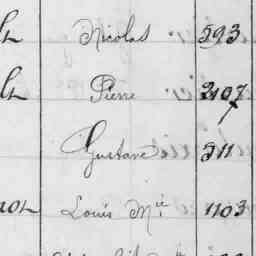 Nicolas 593
Pierre 2107
Gustave 511
Louis Mie 1103